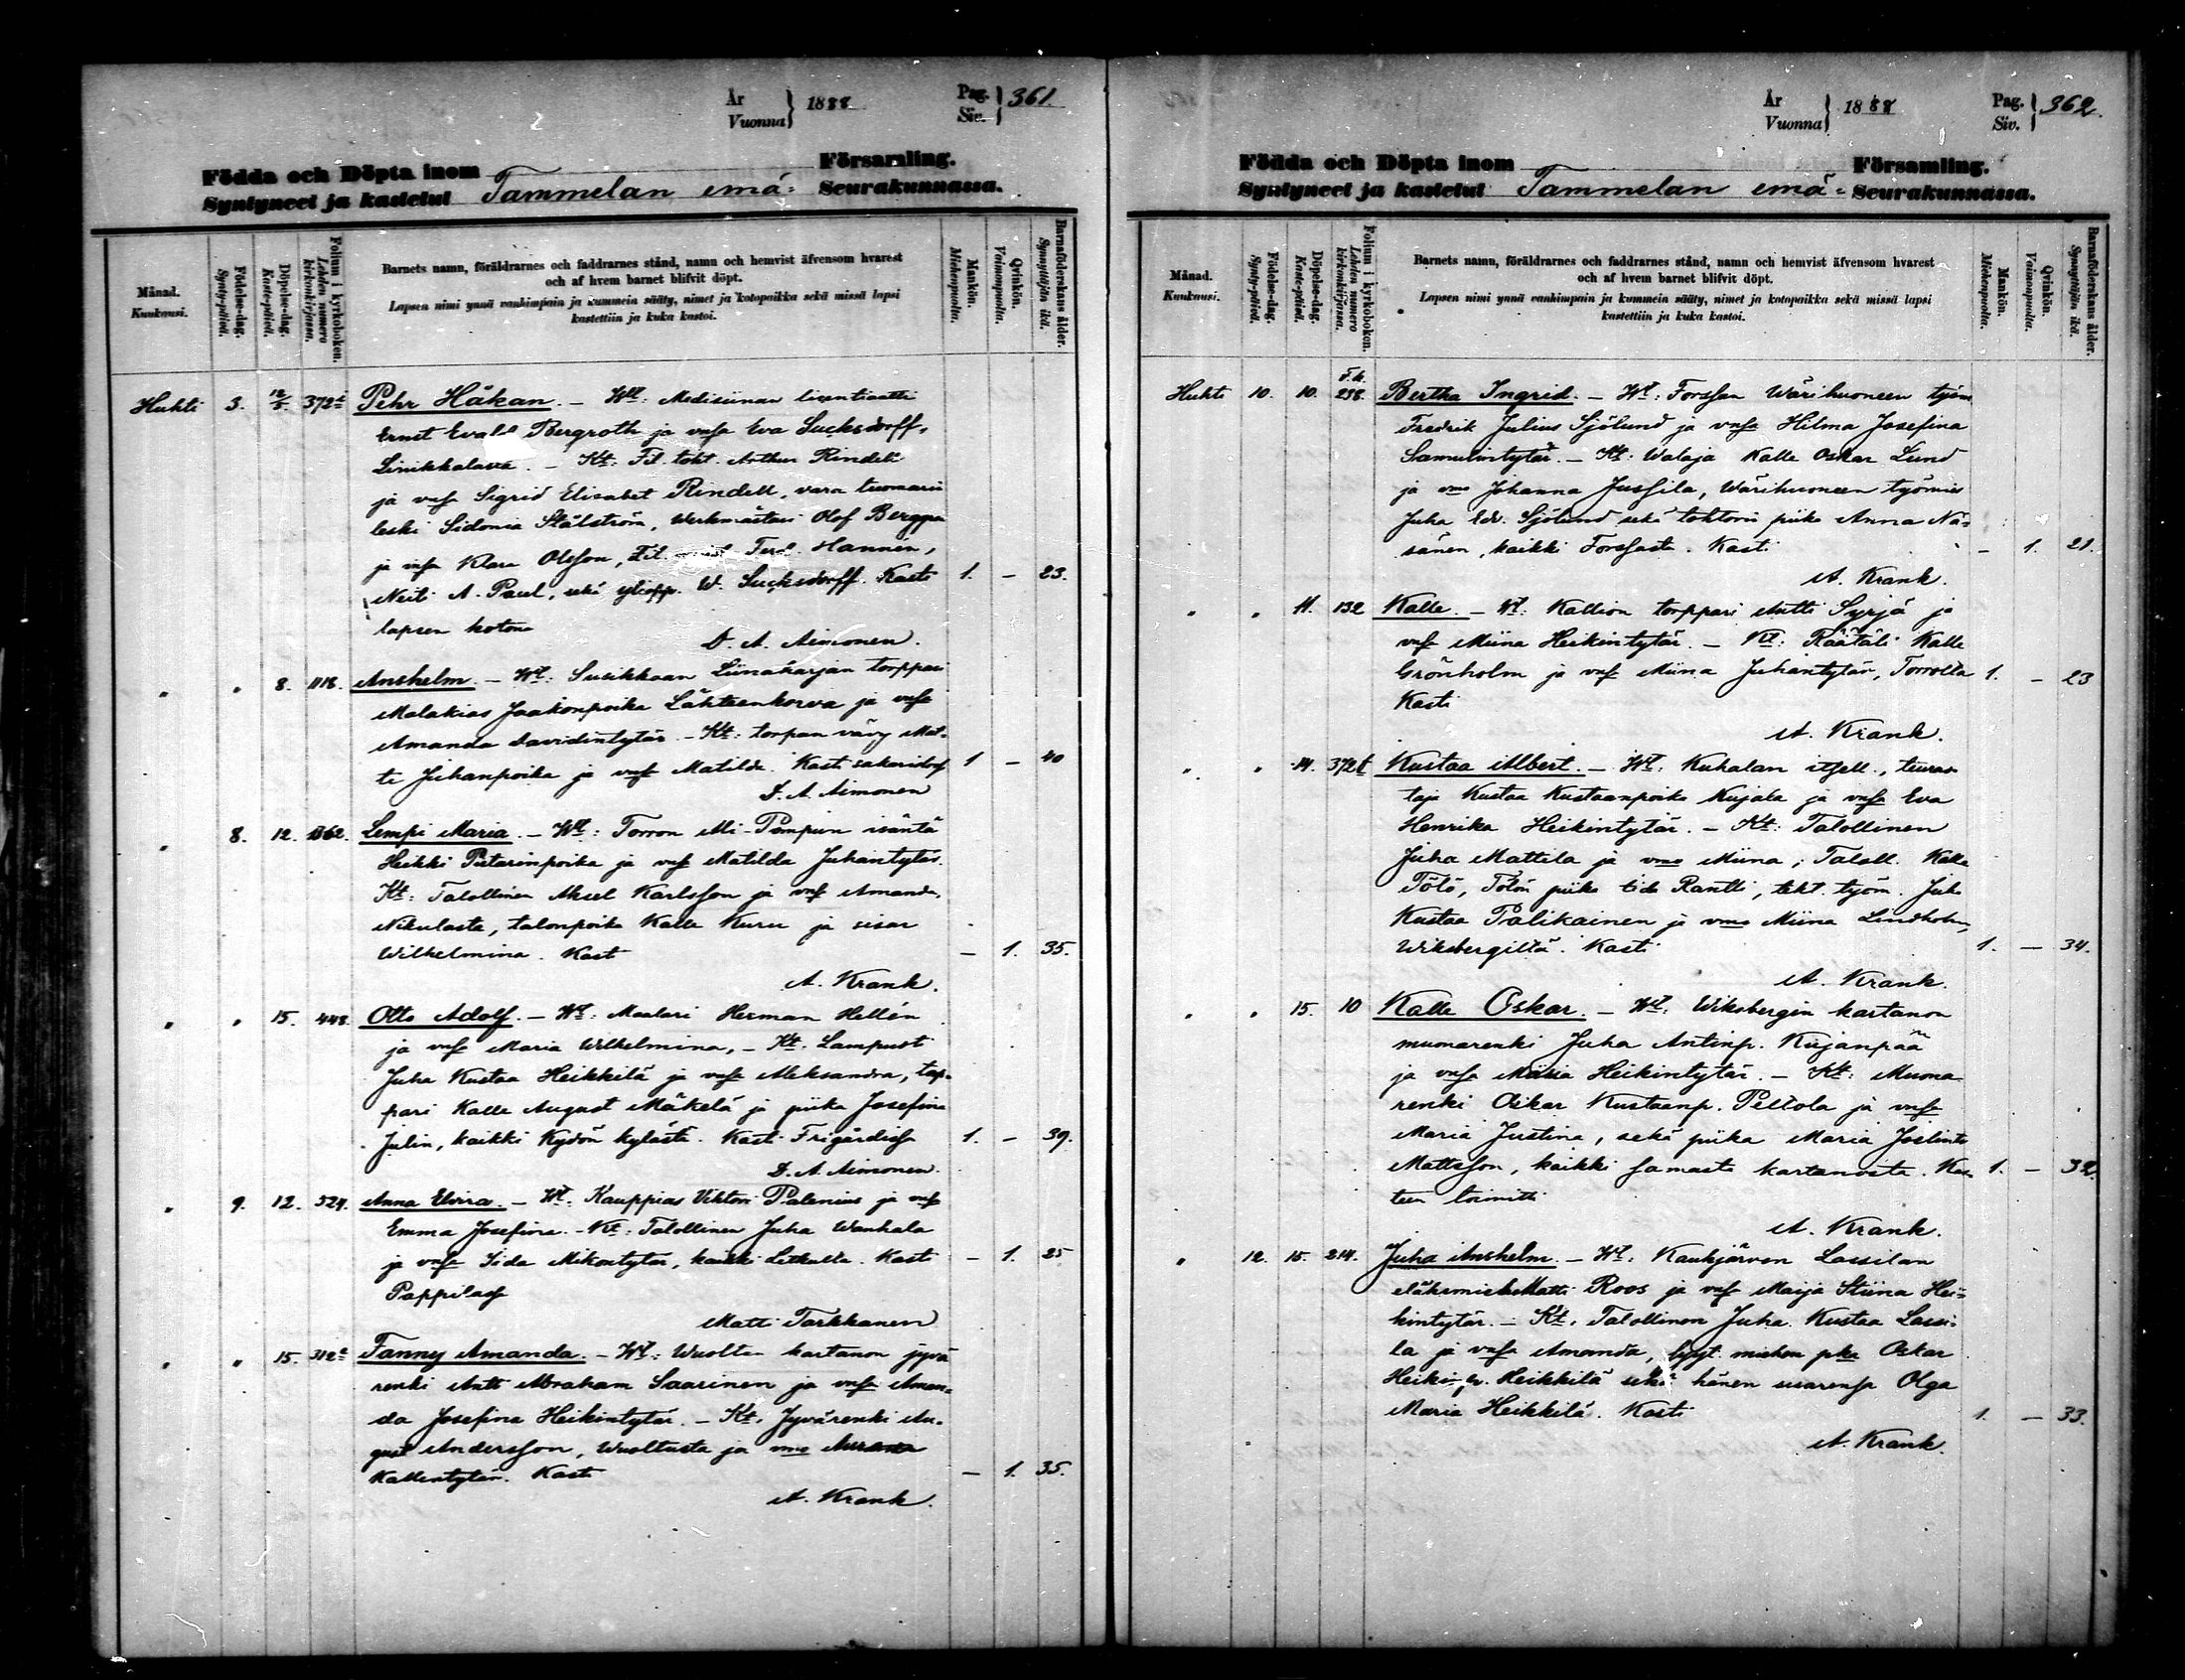 År
Vuonna } 1888
Pag.
Siv. } 361
Födda och Döpta inom Församling.
Syntyneet ja kastetut Tammelan emä- Seurakunnassa.
Månad.
Kuukausi.
Födelse-dag.
Synty-päivä.
Döpelse-dag.
Kaste-päivä.
Folium i kyrkoboken.
Lehden numero kirkonkirjassa.
Barnets namn, föräldrarnes och faddrarnes stånd, namn och hemvist äfvensom hvarest
och af hvem barnet blifvit döpt.
Lapsen nimi ynnä vanhimpain ja kummein sääty, nimet ja kotopaikka sekä missä lapsi
kastettiin ja kuka kastoi.
Mankön.
Miehenpuolta.
Qvinkön.
Vaimonpuolta.
Barnaföderskans ålder.
Synnyttäjän ikä.
Huhti 3. 12/5. 372 Pehr Håkan. – Wt: Medisiinan licentiatti
Ernst Evald Bergroth ja vmsa Eva Sucksdorff,
Linikkalassa. – Kt: Fil. toht. Arthur Rindell
ja vmsa Sigrid Elisabet Rindell, vara tuomarin
leski Sidonia Stålström, Werkmästari Olof
ja vmsa Klara Olsson, Fil. Ferd. Hannén,
Neiti A. Paul, sekä yliopp. W. Sucksdorff. Kasti 1. – 23.
lapsen kotona
D. A. Aimonen.
" " 8. 1118. Anshelm. – Wt: Susikkaan Liinaharjan torppari
Malakias Jaakonpoika Lähteenkorva ja vmsa
Amanda Davidintytär. – Kt: torpan vävy Mat-
ti Juhanpoika ja vmsa Matilda. Kasti 1 – 40
D. A. Aimonen
" 8. 12. 1362. Lempi Maria. – Wt: Torron Ali-Pompun isäntä
Heikki Pietarinpoika ja vmsa Matilda Juhantytär.
Kt: Talollinen Aksel Karlsson ja vmsa Amanda,
Nikulasta, talonpoika Kalle Kuru ja sisar
Wilhelmina. Kasti – 1. 35.
A. Krank.
" " 15. 448. Otto Adolf. – Wt: Maalari Herman Hellén
ja vmsa Maria Wilhelmina, – Kt. Lampuoti
Juha Kustaa Heikkilä ja vmsa Aleksandra, torp-
pari Kalle August Mäkelä ja piika Josefina
Julin, kaikki Kydön kylästä. Kasti Frigårdissa 1. – 39.
D. A. Aimonen.
" 9. 12. 524. Anna Elvira. – Wt. Kauppias Viktor Palenius ja vmsa
Emma Josefina. – Kt: Talollinen Juha Wanhala
ja vmsa Iida Mikontytär, kaikki Letkulla. Kasti – 1. 25
Pappilassa
Matti Tarkkanen
" " 15. 312 Fanny Amanda. – Wt: Wuolten kartanon jyvä
renki Antti Abraham Saarinen ja vmsa Aman-
da Josefina Heikintytär. – Kt. Jyvärenki Au-
gust Andersson, Wuoltusta ja vmo
Kallentytär. Kasti – 1. 35.
A. Krank.
År
Vuonna } 1888
Pag.
Siv. } 362.
Födda och Döpta inom Församling.
Syntyneet ja kastetut Tammelan emä- Seurakunnassa.
Månad.
Kuukausi.
Födelse-dag.
Synty-päivä.
Döpelse-dag.
Kaste-päivä.
Folium i kyrkoboken.
Lehden numero kirkonkirjassa.
Barnets namn, föräldrarnes och faddrarnes stånd, namn och hemvist äfvensom hvarest
och af hvem barnet blifvit döpt.
Lapsen nimi ynnä vanhimpain ja kummein sääty, nimet ja kotopaikka sekä missä lapsi
kastettiin ja kuka kastoi.
Mankön.
Miehenpuolta.
Qvinkön.
Vaimonpuolta.
Barnaföderskans ålder.
Synnyttäjän ikä.
Huhti 10. 10. F.k. 238. Bertha Ingrid. – Wt: Forssan Wärihuoneen työm
Fredrik Julius Sjölund ja vmsa Hilma Josefina
Samulintytär. – Kt: Walaja Kalle Oskar Lund
ja vmo Johanna Jussila, Wärihuoneen työmies
Juha Edv. Sjölund sekä tohtorin piika Anna Nä-
sänen, kaikki Forssasta. Kasti – 1. 21.
A. Krank.
" " 11. 132 Kalle. – Wt: Kallion torppari Antti Syrjä ja
vmsa Miina Heikintytär. – Kt: Räätäli Kalle
Grönholm ja vmsa Miina Juhantytär, Torrolta 1. – 23
Kasti
A. Krank.
" " 14. 372 Kustaa Albert. – Wt: Kuhalan itsell., teuras-
taja Kustaa Kustaanpoika Kujala ja vmsa Eva
Henrika Heikintytär. – Kt: Talollinen
Juha Mattila ja vmo Miina, Taloll. Kalle
Tölö, Tölön piika Iida Rantti, teht. työm. Juha
Kustaa Palikainen ja vmo Miina Lindholm,
Wiksbergiltä. Kasti 1. – 34.
A. Krank.
" " 15. 10 Kalle Oskar. – Wt: Wiksbergin kartanon
muonarenki Juha Antinp. Kujanpää
ja vmsa Maria Heikintytär. – Kt: Muona-
renki Oskar Kustaanp. Peltola ja vmsa
Maria Justina, sekä piika Maria
Mattsson, kaikki samasta kartanosta. Kas- 1. – 32.
teen toimitti
A. Krank.
" 12. 15. 214. Juha Anshelm. – Wt: Kaukjärven Lassilan
eläkemies Matti Roos ja vmsa Maija Stiina Hei-
kintytär. – Kt. Talollinen Juha Kustaa Lassi-
la ja vmsa Amanda, miehen pka Oskar
Heikinp. Heikkilä sekä hänen sisarensa Olga
Maria Heikkilä. Kasti 1. – 33.
A. Krank.